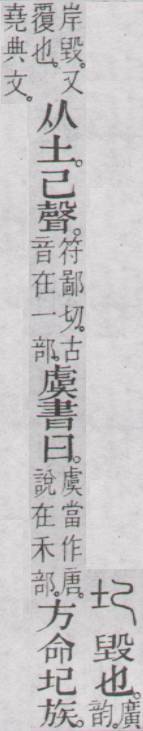 圮 毀也。廣韵。
岸毀。又覆也。从土。己聲。符鄙切。古音在一部。虞書曰。虞當作唐。說在禾部。方命圮族。
堯典文。